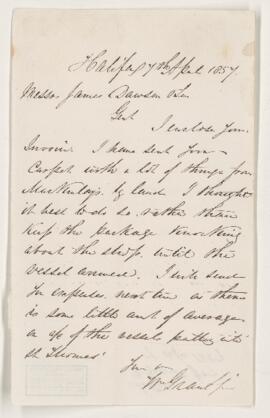 Halifax 7th April 1857.
Messrs James Dawson & Son
Gent
I enclose your
Invoice I have sent your
Carpet with a lot of things from
MacKinlay's by land I thought
it best to do so rather than
keep the package knocking
about the shop until the
vessel arrives. I will send
in next time as there
is some little amt of average
on a/c of the vessels putting into
St Thomas'
Your
Wm Grant Jr